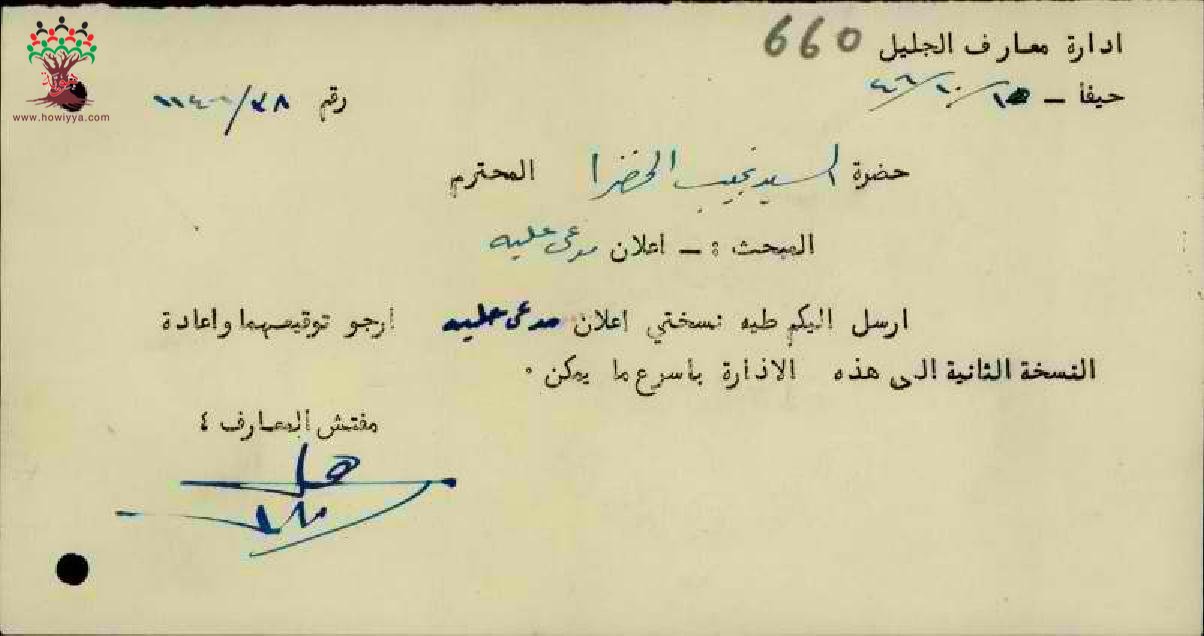 ادارة معارف الجليل 660
حيفا — ١٥/١٠/٤٦
رقم
حضرة السيد نجيب الخضرا المحترم
المبحث : — اعلان مدعى عليه
ارسل اليكم طيه نسختي اعلان مدعى عليه ارجو توقيعهما واعادة
النسخة الثانية الى هذه الادارة باسرع ما يمكن .
مفتش المعارف ٤
هوية
www.howiyya.com